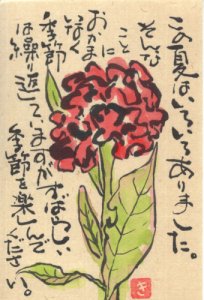 この夏はいろいろありました。
そんな
こと
に
おかまい
なく
季節
は繰り返していますが
すばらしい
季節を楽しんで
ください。
き